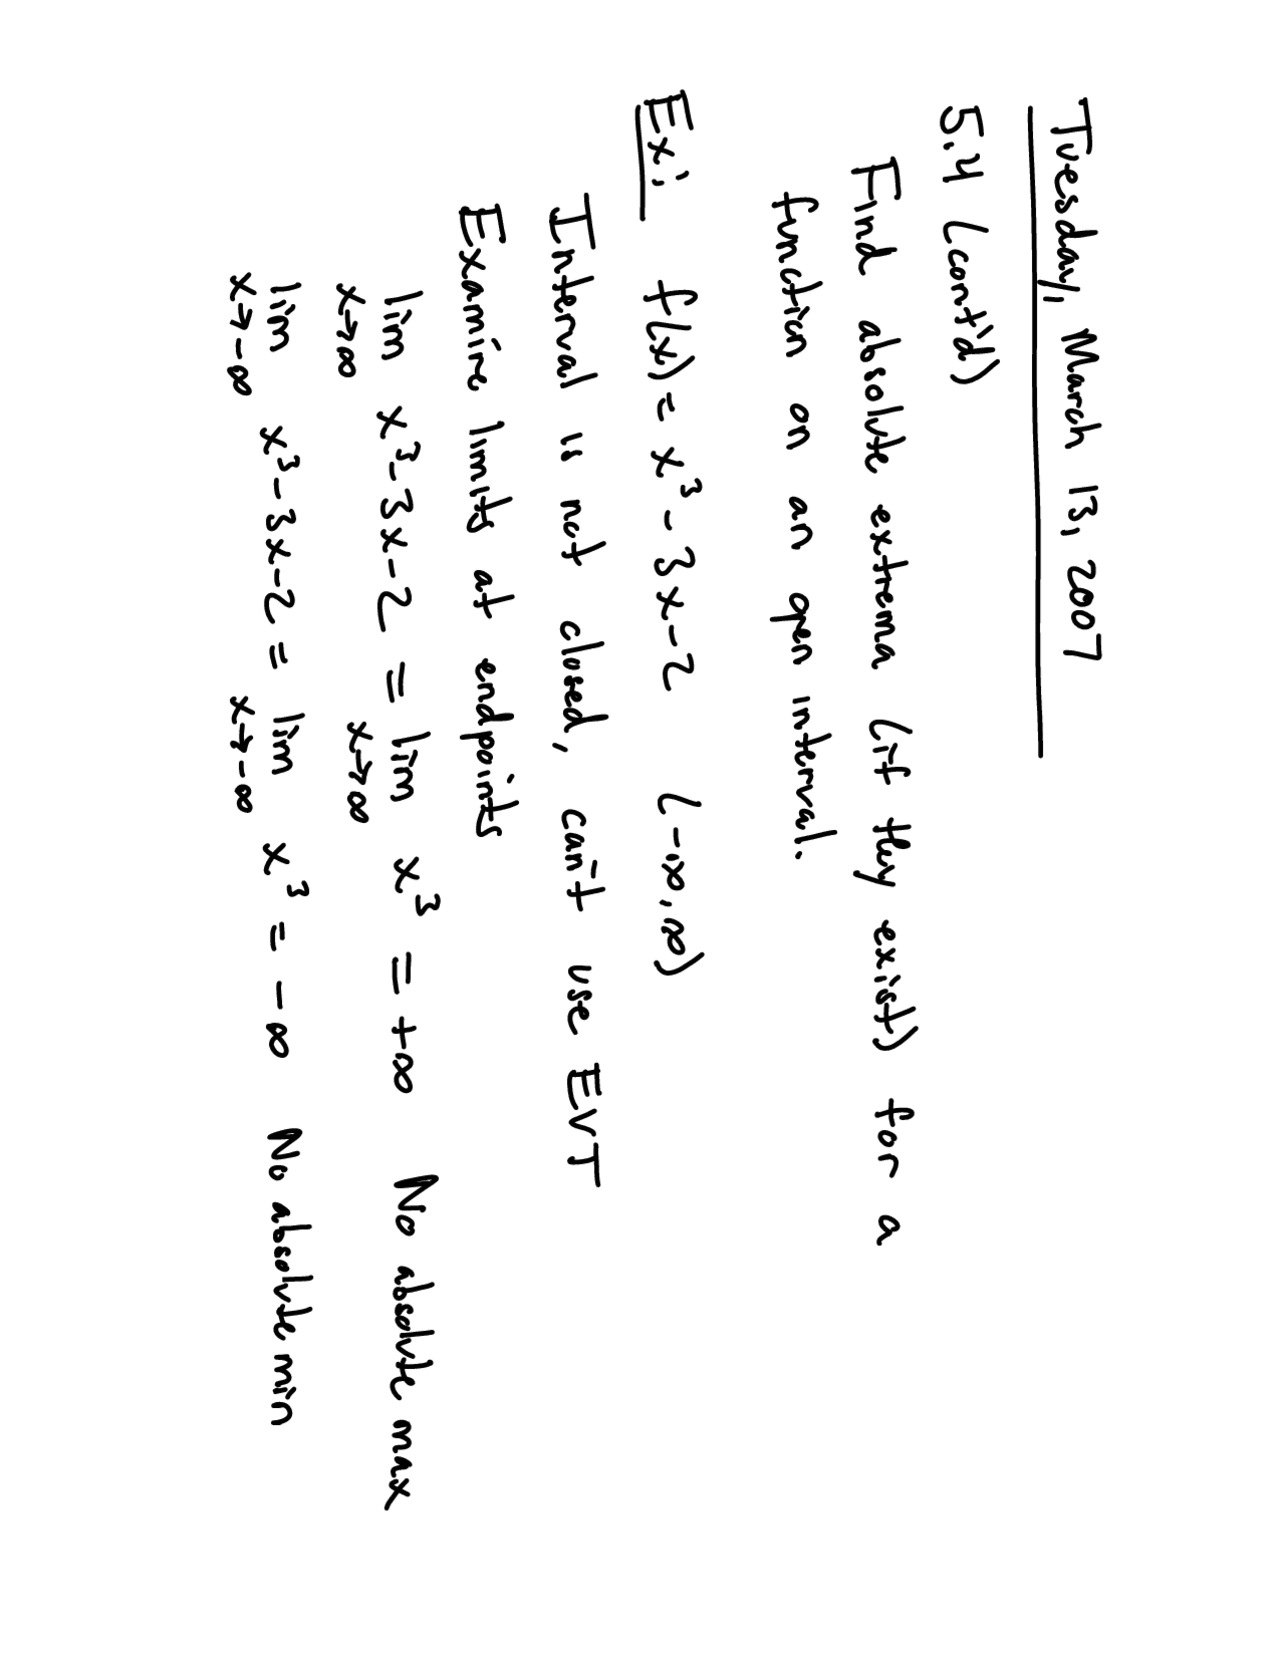 Tuesday, March 13, 2007
5.4 (cont'd)
Find absolute extrema (if they exist) for a
function on an open interval.
Ex: f(x) = x³ - 3x - 2 (-∞, ∞)
Interval is not closed, can't use EVT
Examine limits at endpoints
lim x→∞ x³ - 3x - 2 = lim x→∞ x³ = +∞ No absolute max
lim x→-∞ x³ - 3x - 2 = lim x→-∞ x³ = -∞ No absolute min